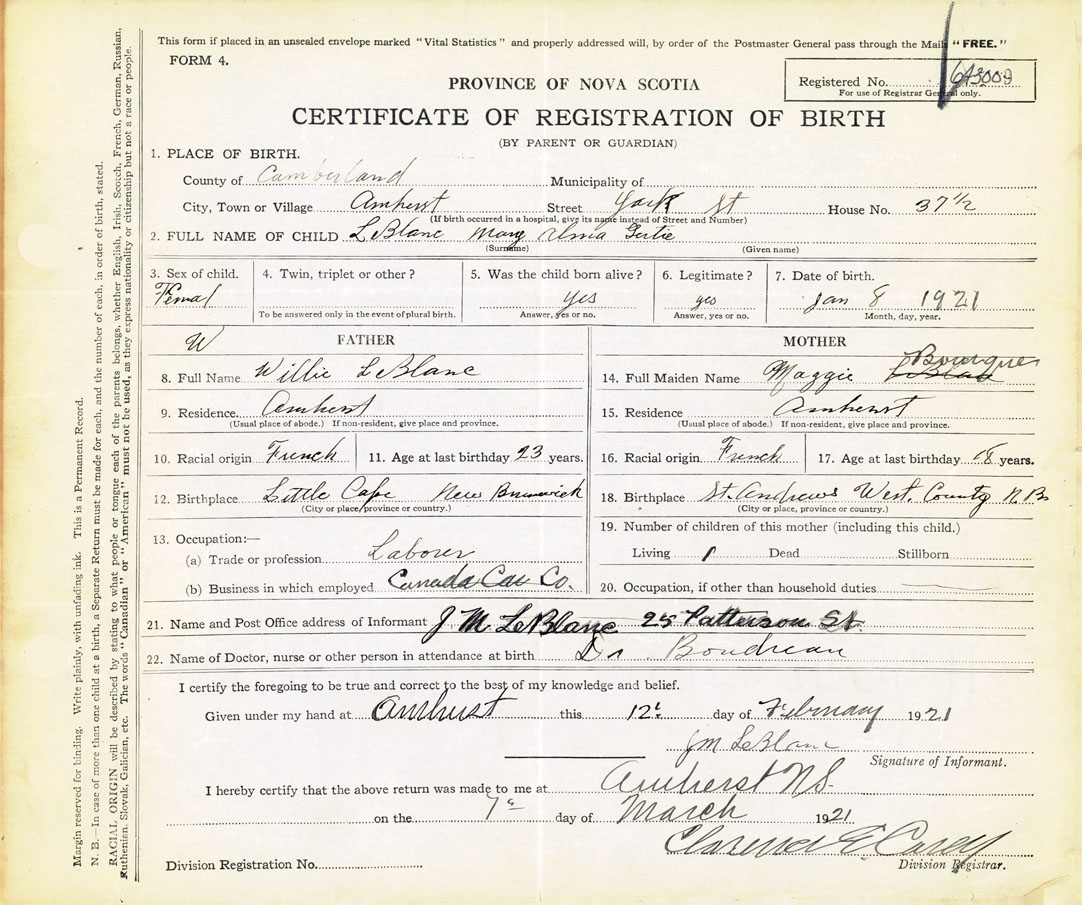 This form if placed in an unsealed envelope marked "Vital Statistics" and properly addressed will, by order of the Postmaster General pass through the Mail "FREE."
FORM 4.
Registered No.
For use of Registrar General only.
PROVINCE OF NOVA SCOTIA
CERTIFICATE OF REGISTRATION OF BIRTH
(BY PARENT OR GUARDIAN)
1. PLACE OF BIRTH.
County of Cumberland Municipality of
City, Town or Village Amherst Street York St House No. 37 1/2
(If birth occurred in a hospital, give its name instead of Street and Number)
2. FULL NAME OF CHILD LeBlanc Mary Alma Gertie
(Surname) (Given name)
3. Sex of child. 4. Twin, triplet or other? 5. Was the child born alive? 6. Legitimate? 7. Date of birth.
Femal yes yes Jan 8 1921
To be answered only in the event of plural birth. Answer, yes or no. Answer, yes or no. Month, day, year.
W FATHER
8. Full Name Willie LeBlanc
9. Residence. Amherst
(Usual place of abode.) If non-resident, give place and province.
10. Racial origin French 11. Age at last birthday 23 years.
12. Birthplace Little Cape New Brunswick
(City or place, province or country.)
13. Occupation:—
(a) Trade or profession Laborer
(b) Business in which employed Canada Car Co.
MOTHER
14. Full Maiden Name Maggie Bourque
15. Residence Amherst
(Usual place of abode.) If non-resident, give place and province.
16. Racial origin French 17. Age at last birthday 18 years.
18. Birthplace St. Andrews West. County N B
(City or place, province or country.)
19. Number of children of this mother (including this child.)
Living 1 Dead Stillborn
20. Occupation, if other than household duties
21. Name and Post Office address of Informant J M LeBlanc 25 Patterson St.
22. Name of Doctor, nurse or other person in attendance at birth Dr Boudreau
I certify the foregoing to be true and correct to the best of my knowledge and belief.
Given under my hand at Amherst this 12t day of February 1921
J M LeBlanc
Signature of Informant.
I hereby certify that the above return was made to me at Amherst N S.
on the 7th day of March 1921
Clarence E Casey
Division Registration No. Division Registrar.
Margin reserved for binding. Write plainly, with unfading ink. This is a Permanent Record.
N. B.—In case of more than one child at a birth, a Separate Return must be made for each, and the number of each, in order of birth, stated.
RACIAL ORIGIN will be described by stating to what people or tongue each of the parents belongs, whether English, Irish, Scotch, French, German, Russian,
Ruthenian, Slovak, Galician, etc. The words "Canadian" or "American" must not be used, as they express nationality or citizenship but not a race or people.